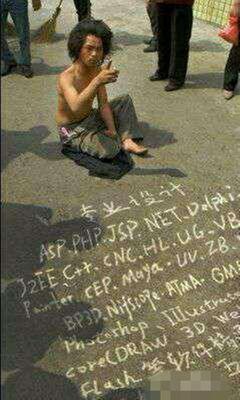 专业设计
ASP.PHP.JSP.NET.Delphi
J2EE.C++.CNC.HL.UG.VB
Painter.CEP.Maya.UV.ZB.
BP3D.ATMA.GM
Photoshop、Illustrator
CorelDRAW、3D.We
Flash、